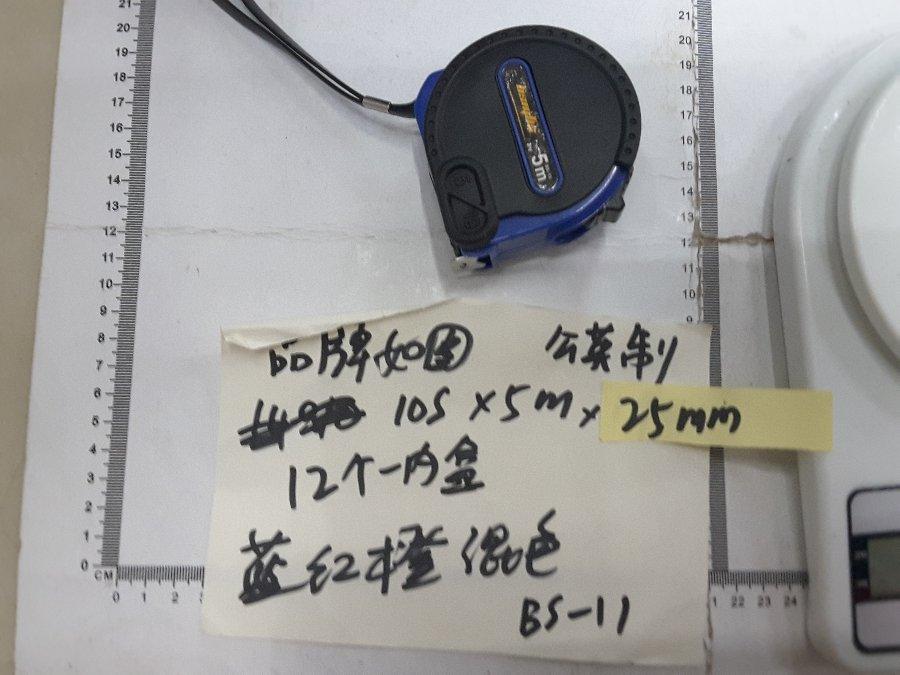 5m
品牌如图 公英制
10S×5m×25mm
12个一内盒
蓝红橙混色
BS-11
21
20
19
18
17
16
15
14
13
12
11
10
9
8
7
6
5
4
3
2
1
0
CM
0 1 2
22 23 24
21
20
19
18
17
16
15
14
13
12
11
10